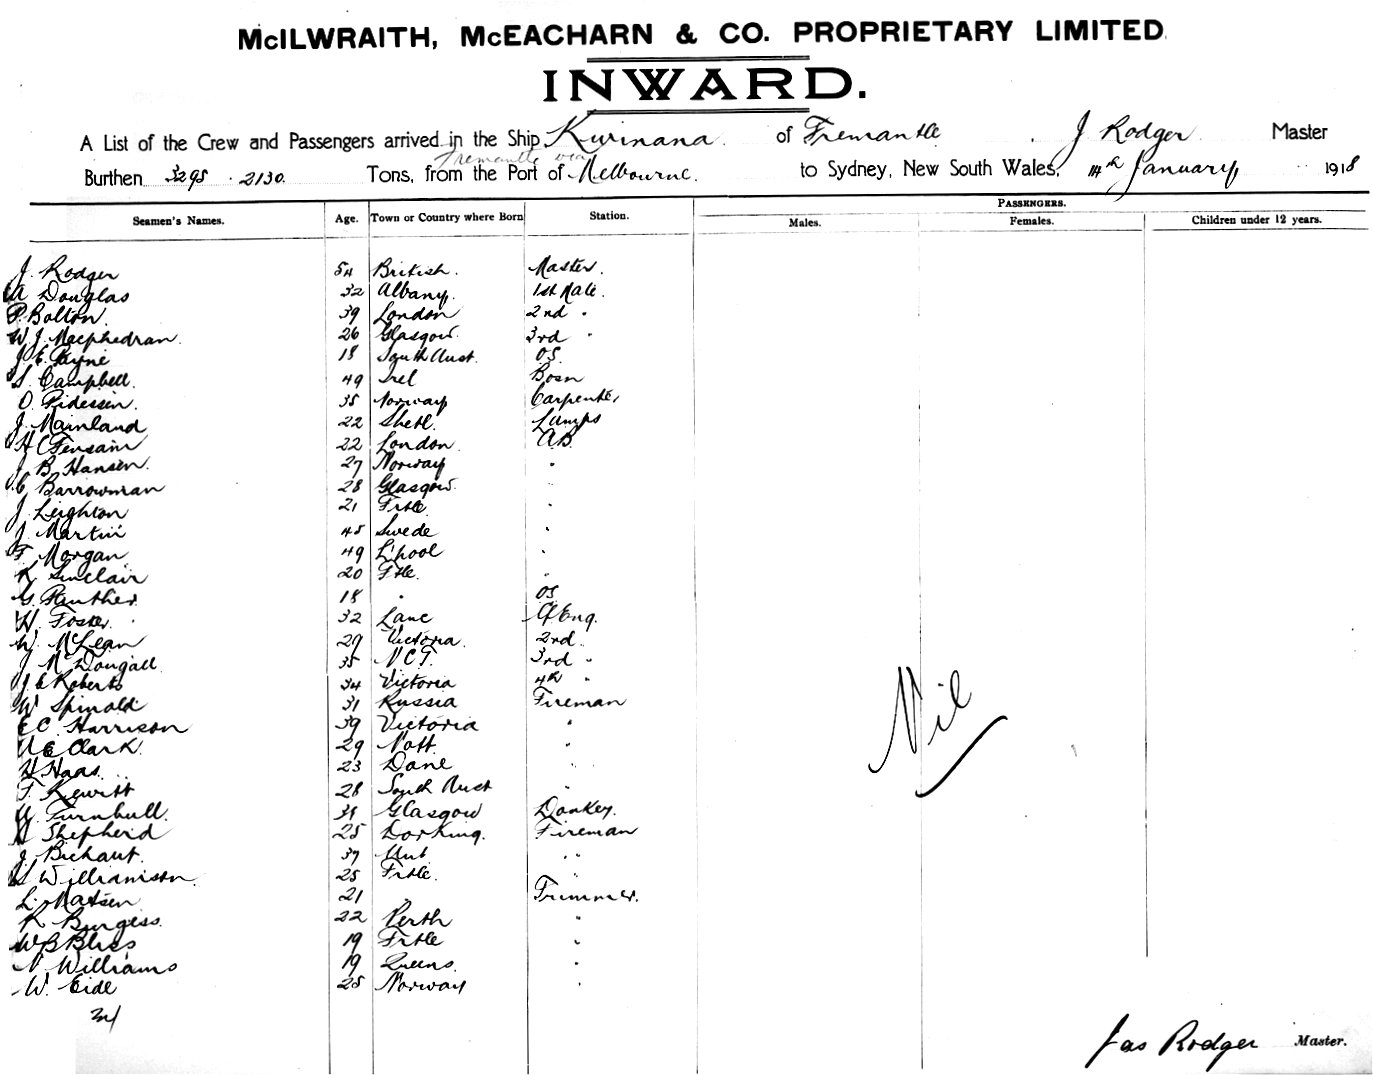 McILWRAITH, McEACHARN & CO. PROPRIETARY LIMITED
INWARD.
A List of the Crew and Passengers arrived in the Ship Kwinana of Fremantle J Rodger Master
Fremantle via
Burthen 3295 2130 Tons, from the Port of Melbourne. to Sydney, New South Wales, 14th January 1918
PASSENGERS.
Seamen's Names. Age. Town or Country where Born Station. Males. Females. Children under 12 years.
J. Rodger 54 British. Master.
A Douglas 32 Albany. 1st Mate.
P. Bolton 39 London 2nd "
W. J. Macphedran. 26 Glasgow. 3rd "
J. E. Payne 18 South Aust. OS.
S. Campbell. 49 Irel Bosn
O. Pidessen. 35 Norway Carpenter
J. Mainland 22 Shetl. Lamps
H C Fensain 22 London AB.
J B Hansen. 27 Norway "
C Barrowman 28 Glasgow. "
J Leighton 21 Frtle "
J Martin 45 Swede "
F Morgan 49 L'pool "
K Sinclair 20 Ftle. "
G. 18 " OS
W. Foster. 32 Lanc Cf Eng.
W. McLean 29 Victoria. 2nd.
J McDougall 35 3rd "
J C Roberts 34 Victoria 4th "
W Spinold 31 Russia Fireman
E C. Harrison 39 Victoria "
Clark. 29 Nott. "
H Haas. 23 Dane "
F. Kewitt 28 South Aust "
Turnbull. Glasgow Donkey.
Shepherd 25 Dorking. Fireman
J. Bichaut. 37 "
Williamson. 25 Frtle. "
L. Matsen 21 " Trimmer.
R Burgess. 22 Perth "
W B Bliss 19 Frtle "
N Williams 19 Queens. "
W. Eide 25 Norway "
34
Nil
Jas Rodger Master.